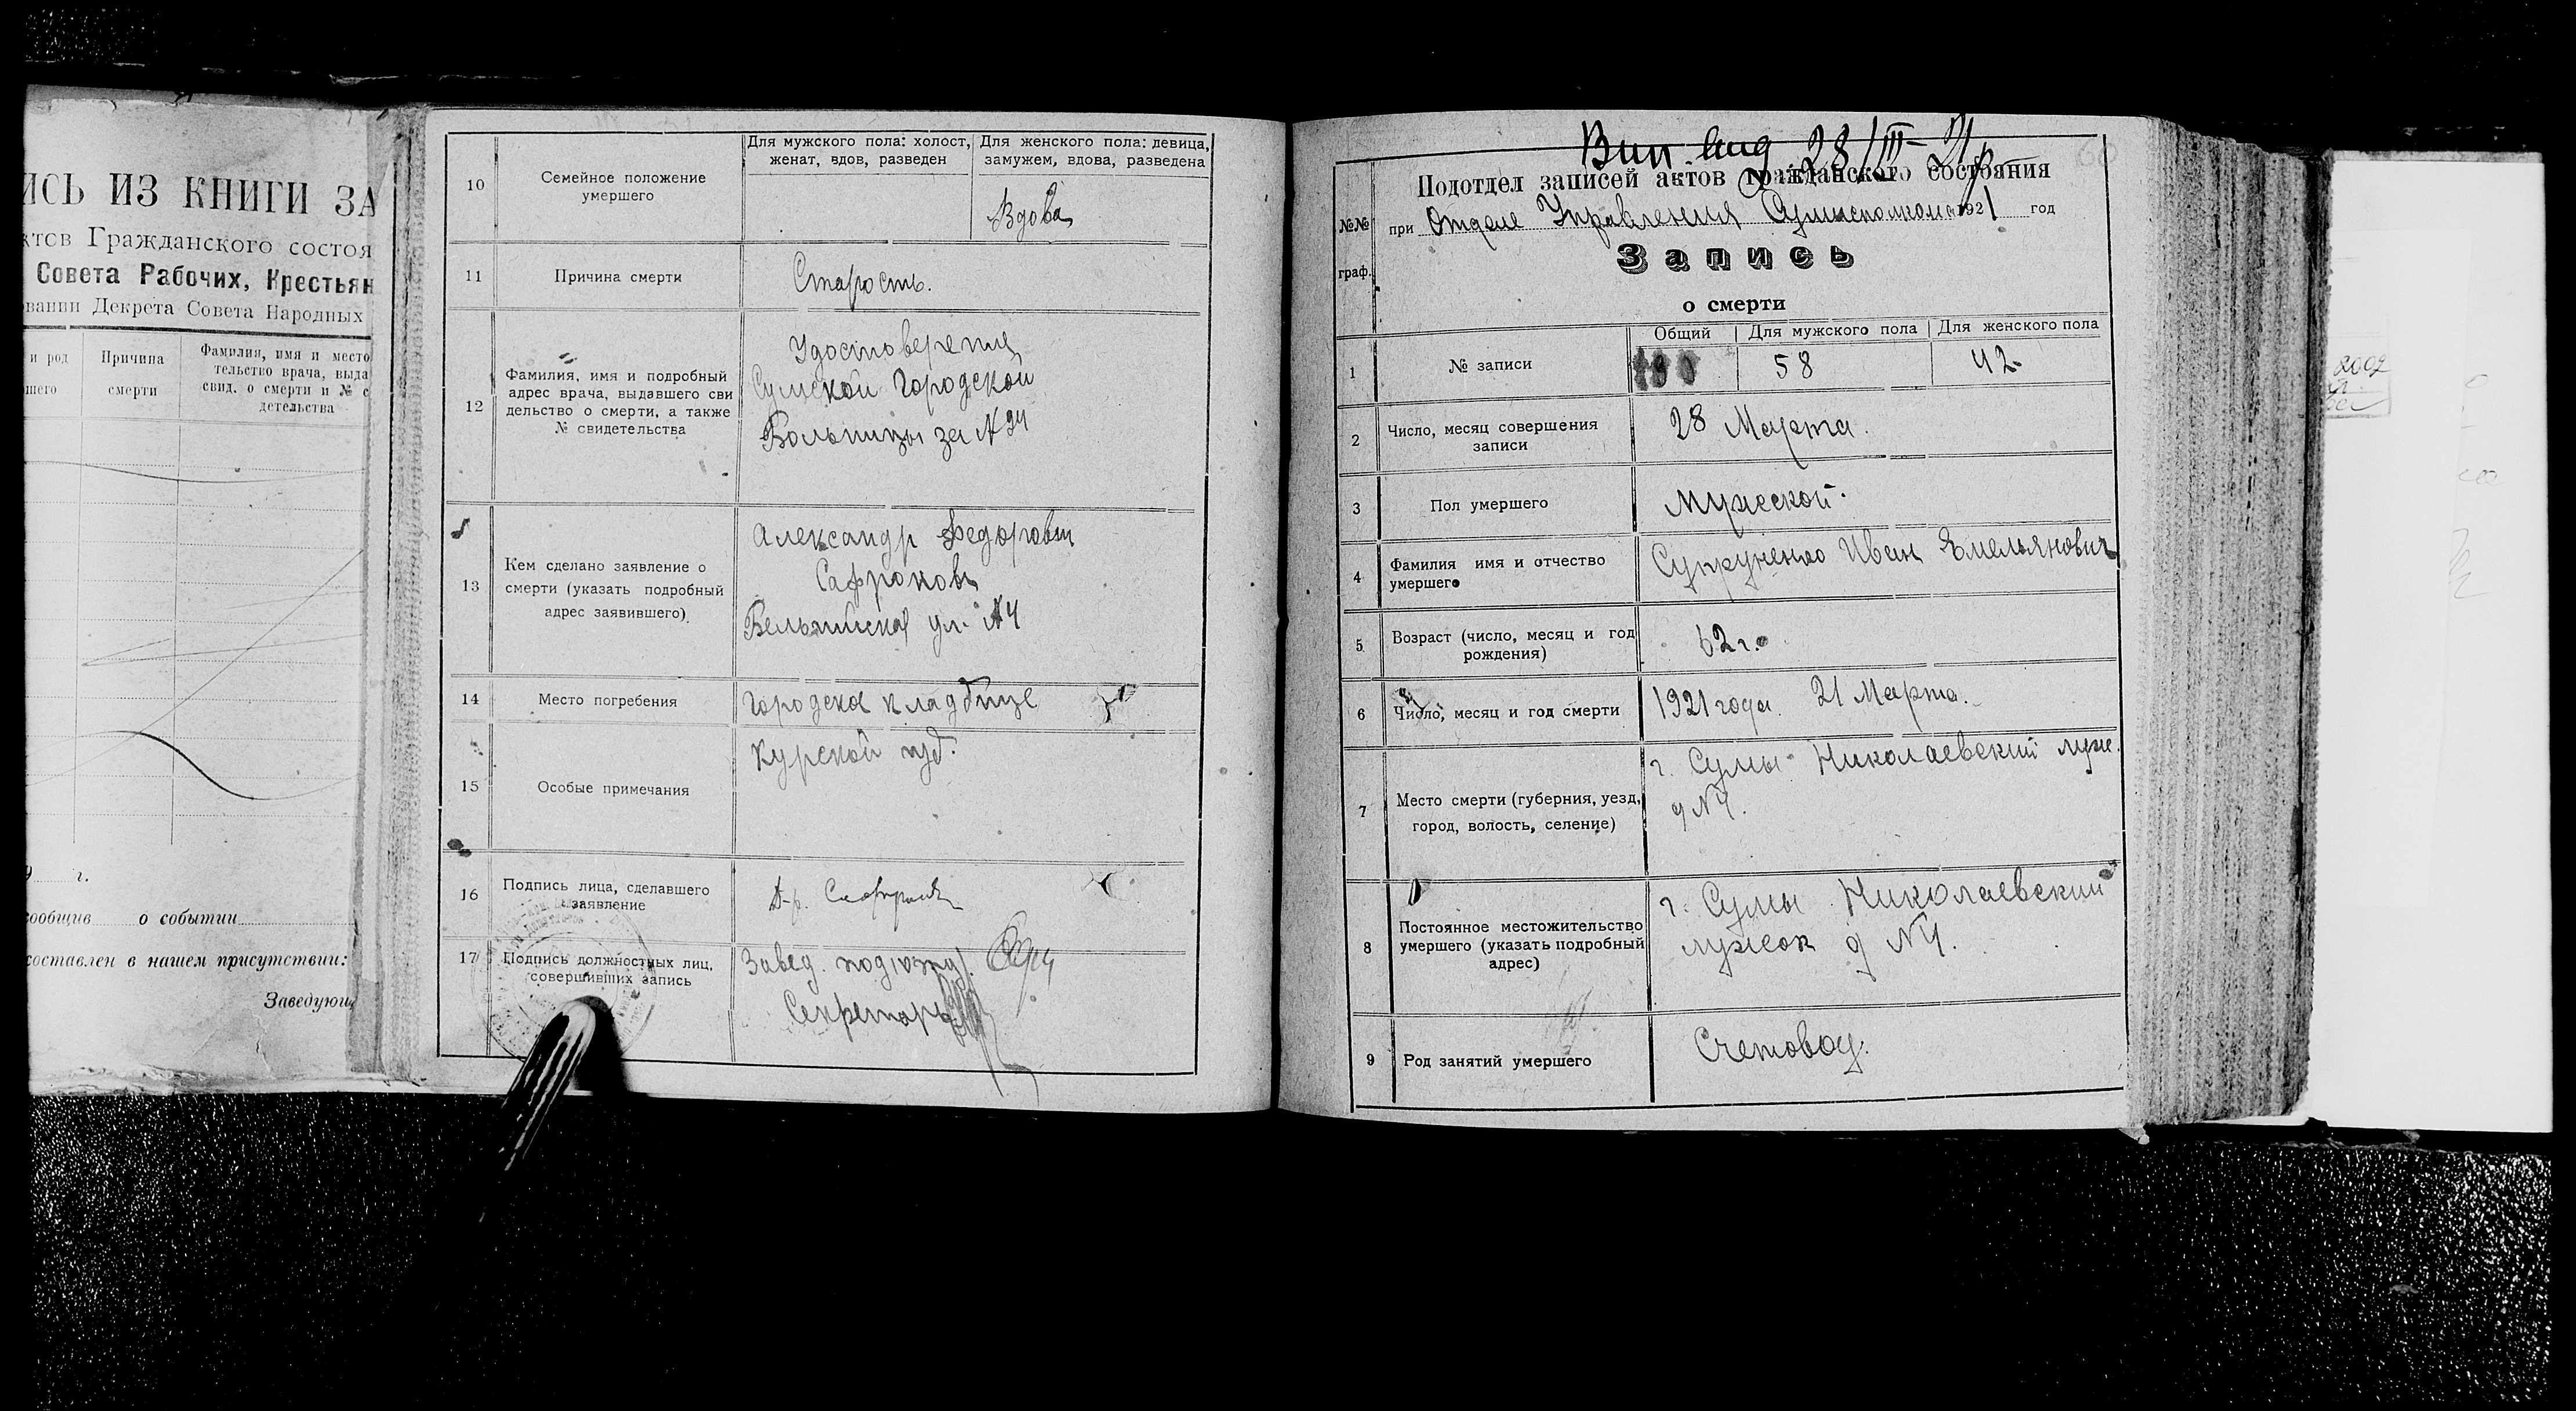 ИСЬ ИЗ КНИГИ ЗА
ктов Гражданского состоя
Совета Рабочих, Крестьян
овании Декрета Совета Народных
и род
шего
Причина
смерти
Фамилия, имя и место
тельство врача, выда
свид. о смерти и № с
детельства
г.
сообщив о событии
составлен в нашем присутствии:
Заведующ
10
Семейное положение
умершего
Для мужского пола: холост,
женат, вдов, разведен
Для женского пола: девица,
замужем, вдова, разведена
Вдова
11
Причина смерти
Старость.
12
Фамилия, имя и подробный
адрес врача, выдавшего сви
дельство о смерти, а также
№ свидетельства
Удостоверение
Сумской Городской
Больницы за №
13
Кем сделано заявление о
смерти (указать подробный
адрес заявившего)
Александр Федорович
Сафронов
ул. №4
14
Место погребения
Городское кладбище
15
Особые примечания
Курской губ.
16
Подпись лица, сделавшего
заявление
17
Подпись должностных лиц,
совершивших запись
Завед. подотд.
Секретарь
28/III-21
Подотдел записей актов гражданского состояния
при Отделе Управления Сумисполкома 1921 год
№№
граф.
Запись
о смерти
1
№ записи
Общий
Для мужского пола
Для женского пола
58
42
2
Число, месяц совершения
записи
28 Марта.
3
Пол умершего
Мужской.
4
Фамилия имя и отчество
умершего
Супруненко Иван Емельянович
5
Возраст (число, месяц и год
рождения)
62 г.
6
Число, месяц и год смерти
1921 года 21 Марта.
7
Место смерти (губерния, уезд,
город, волость, селение)
г. Сумы Николаевский луж.
д №4.
8
Постоянное местожительство
умершего (указать подробный
адрес)
г. Сумы Николаевский
лужок д №4.
9
Род занятий умершего
Счетовод.
2002